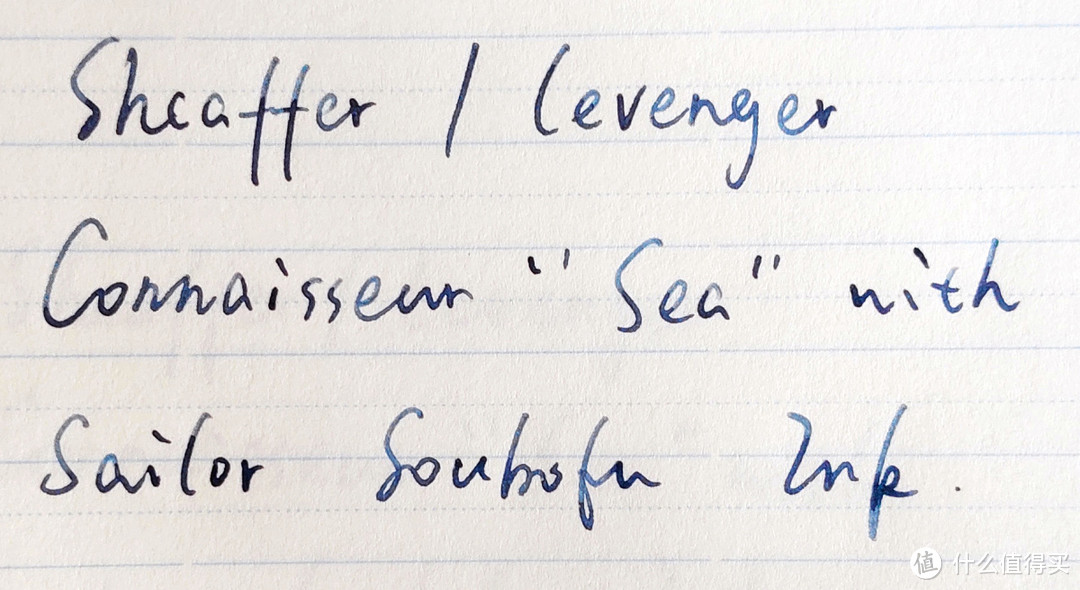 Sheaffer / Levenger
Connaisseur "Sea" with
Sailor Soubofu Ink.
值 什么值得买